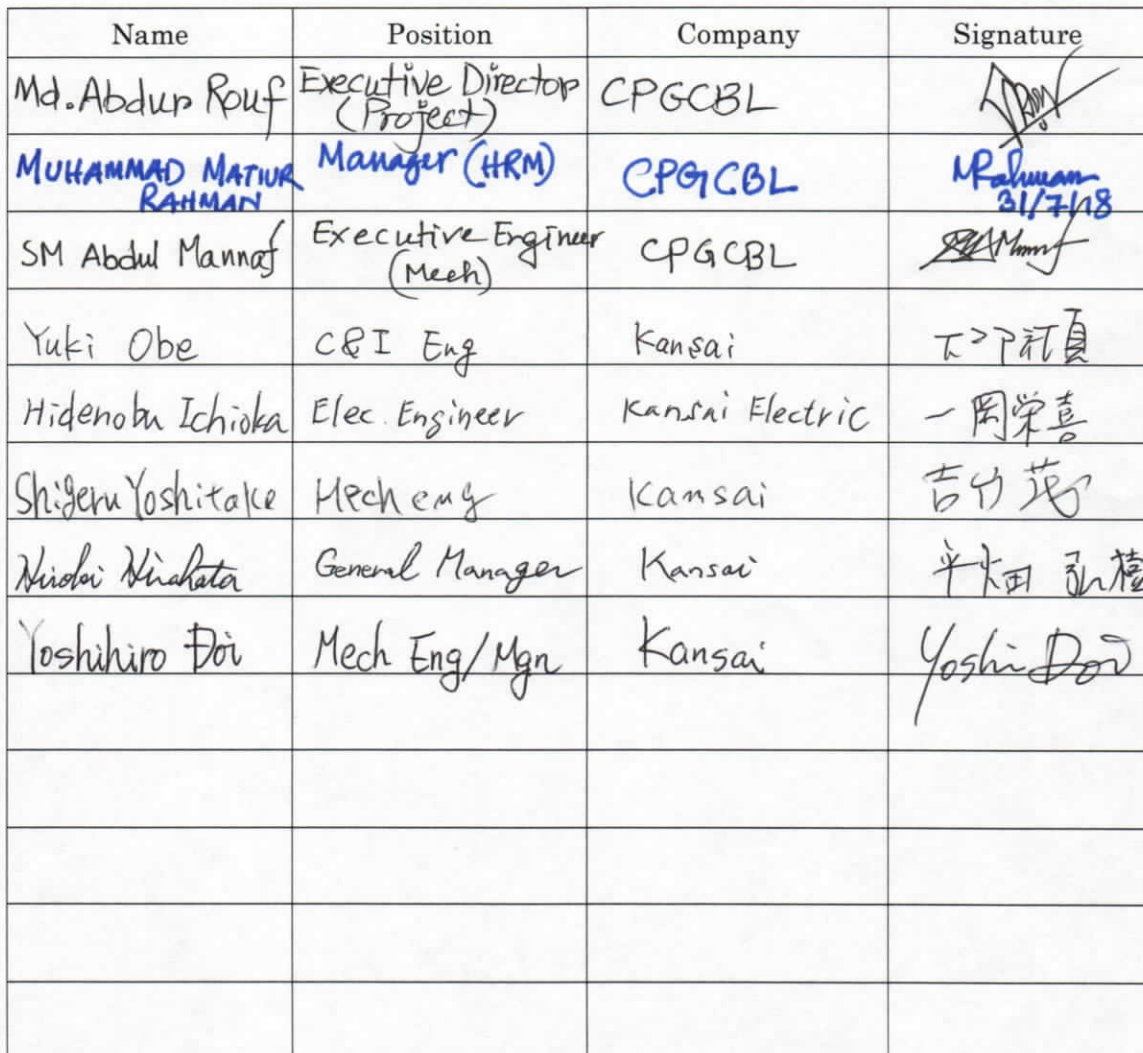 Name Position Company Signature
Md. Abdur Rouf Executive Director (Project) CPGCBL
MUHAMMAD MATIUR RAHMAN Manager (HRM) CPGCBL MRahman 31/7/18
SM Abdul Mannaf Executive Engineer (Mech) CPGCBL
Yuki Obe C&I Eng Kansai
Hidenobu Ichioka Elec. Engineer Kansai Electric 一岡栄喜
Shigeru Yoshitake Mech eng Kansai 吉竹 茂
Hiroki Hirahata General Manager Kansai 平畑 弘樹
Yoshihiro Doi Mech Eng/Mgr Kansai Yoshi Doi